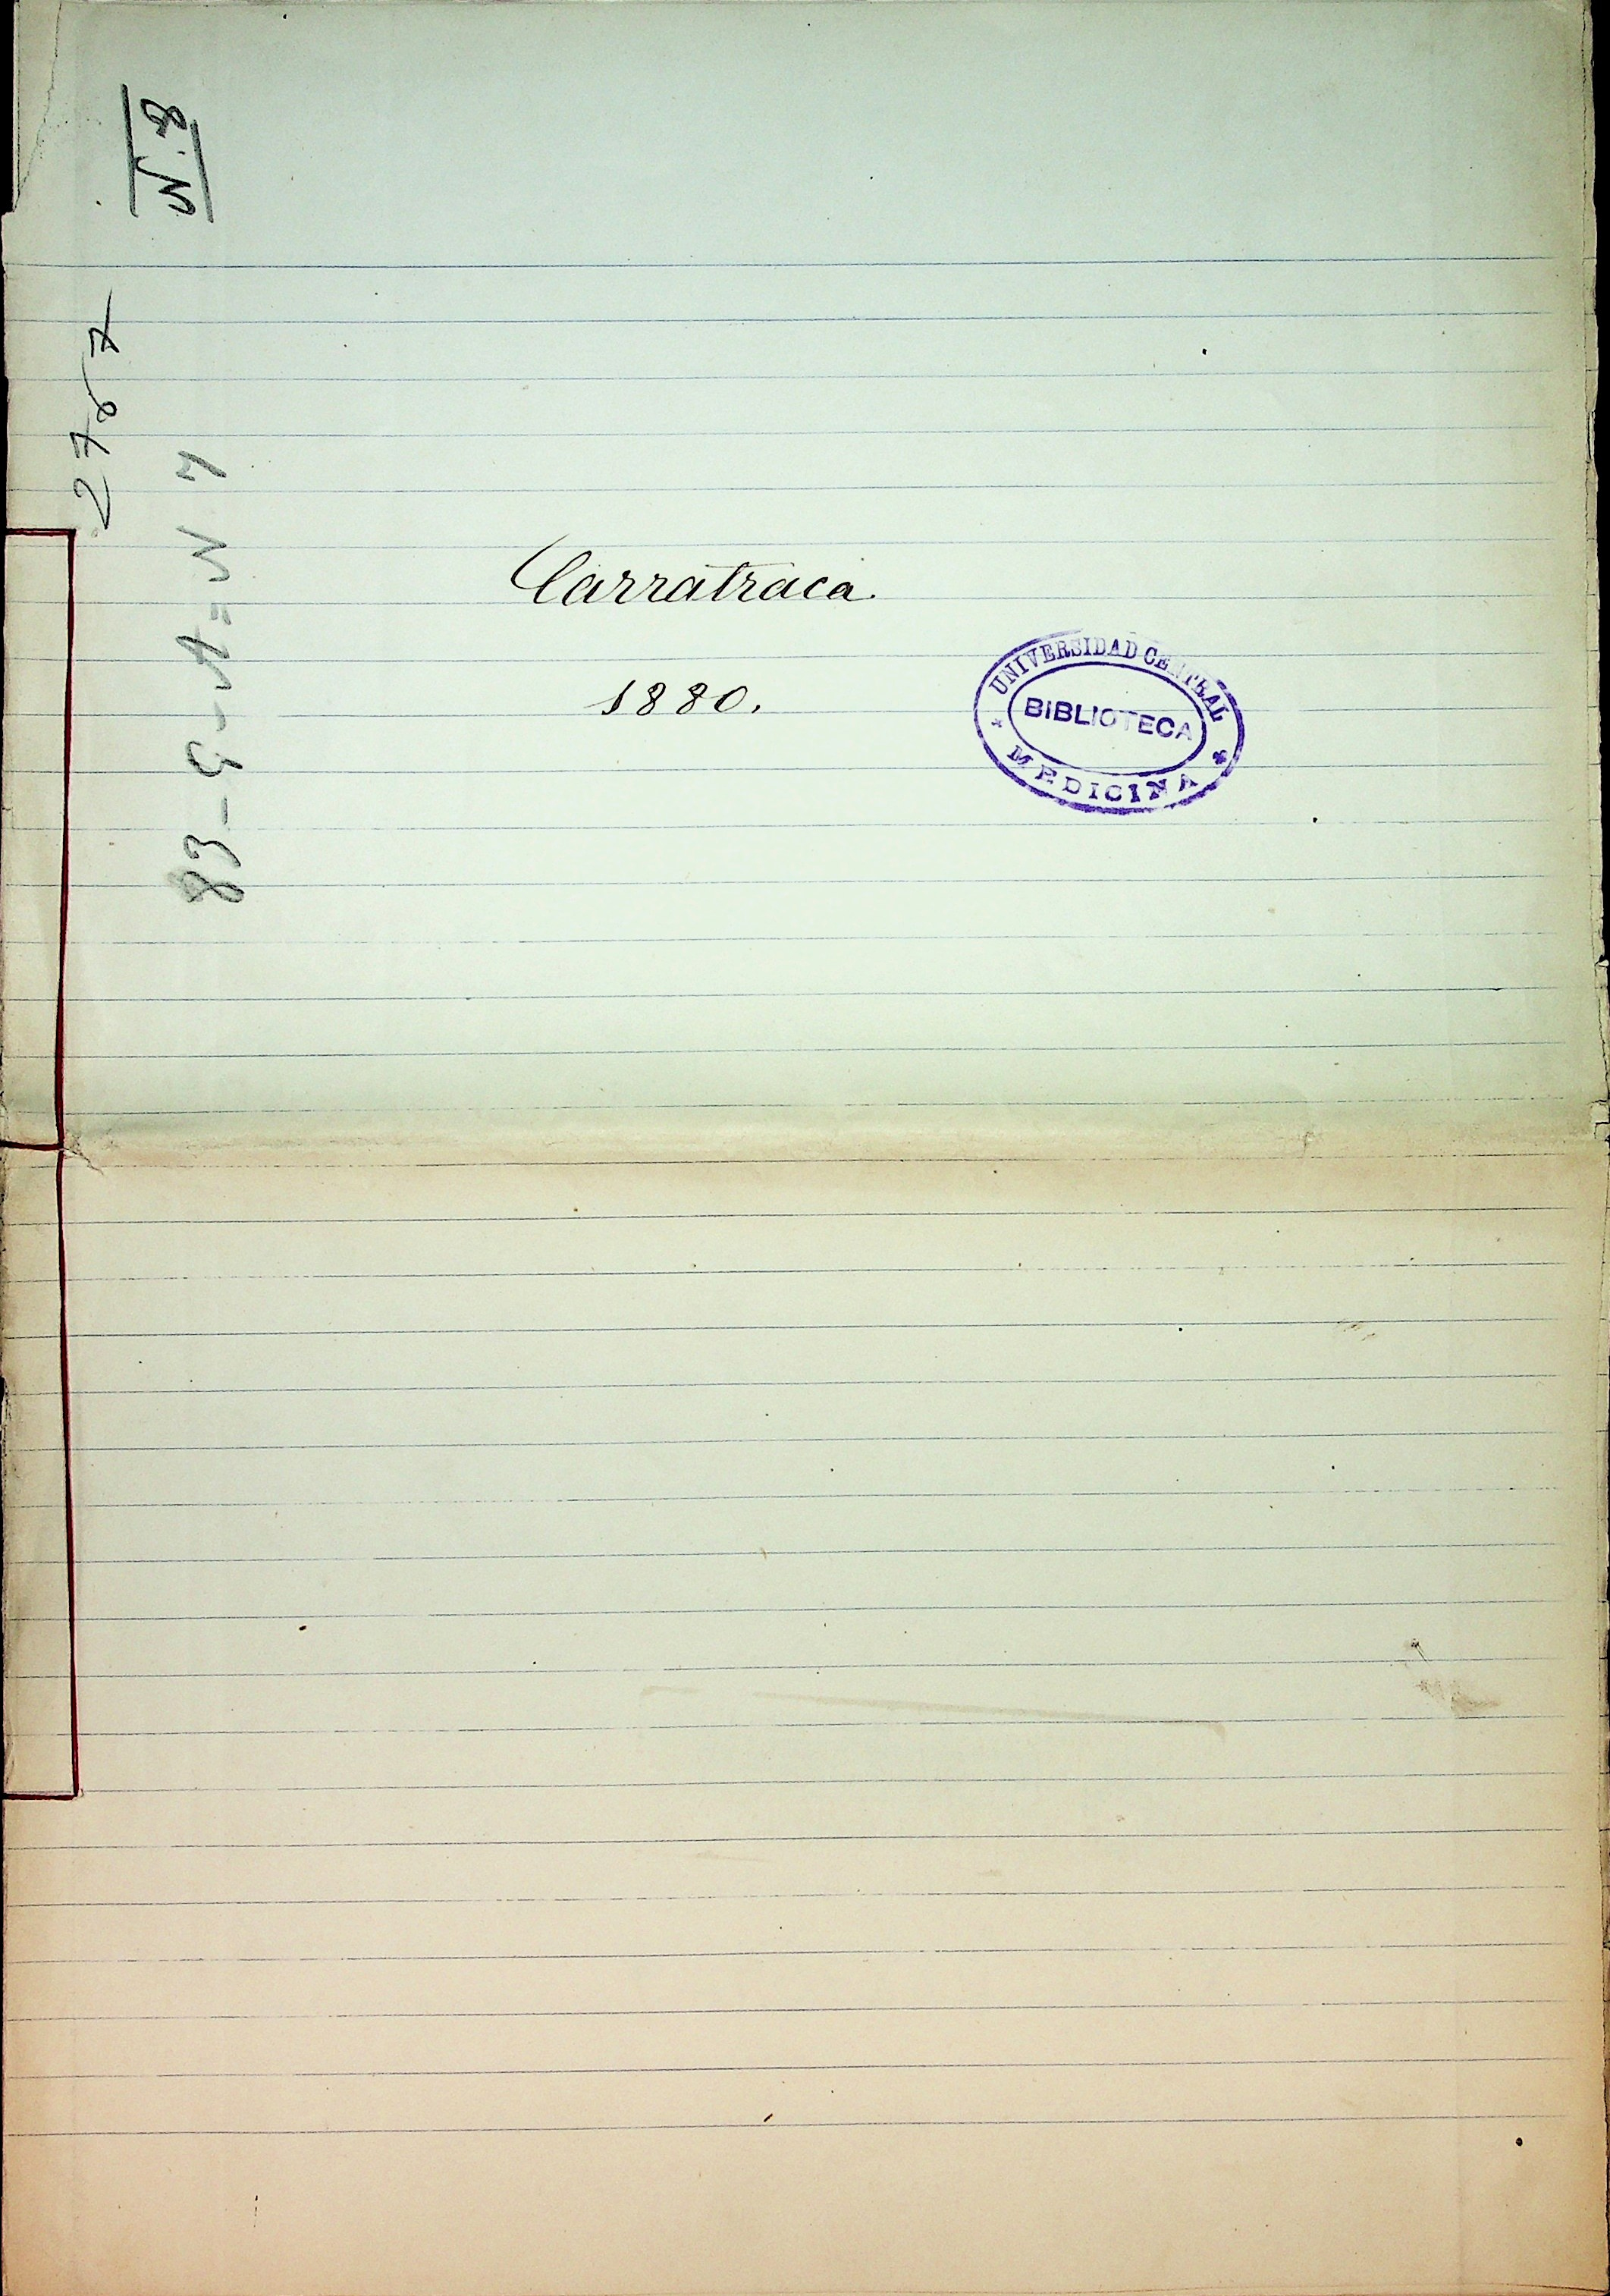 N. 8
2767
83-G-A=N 7
Carratraca.
1880.
UNIVERSIDAD CENTRAL
BIBLIOTECA
MEDICINA